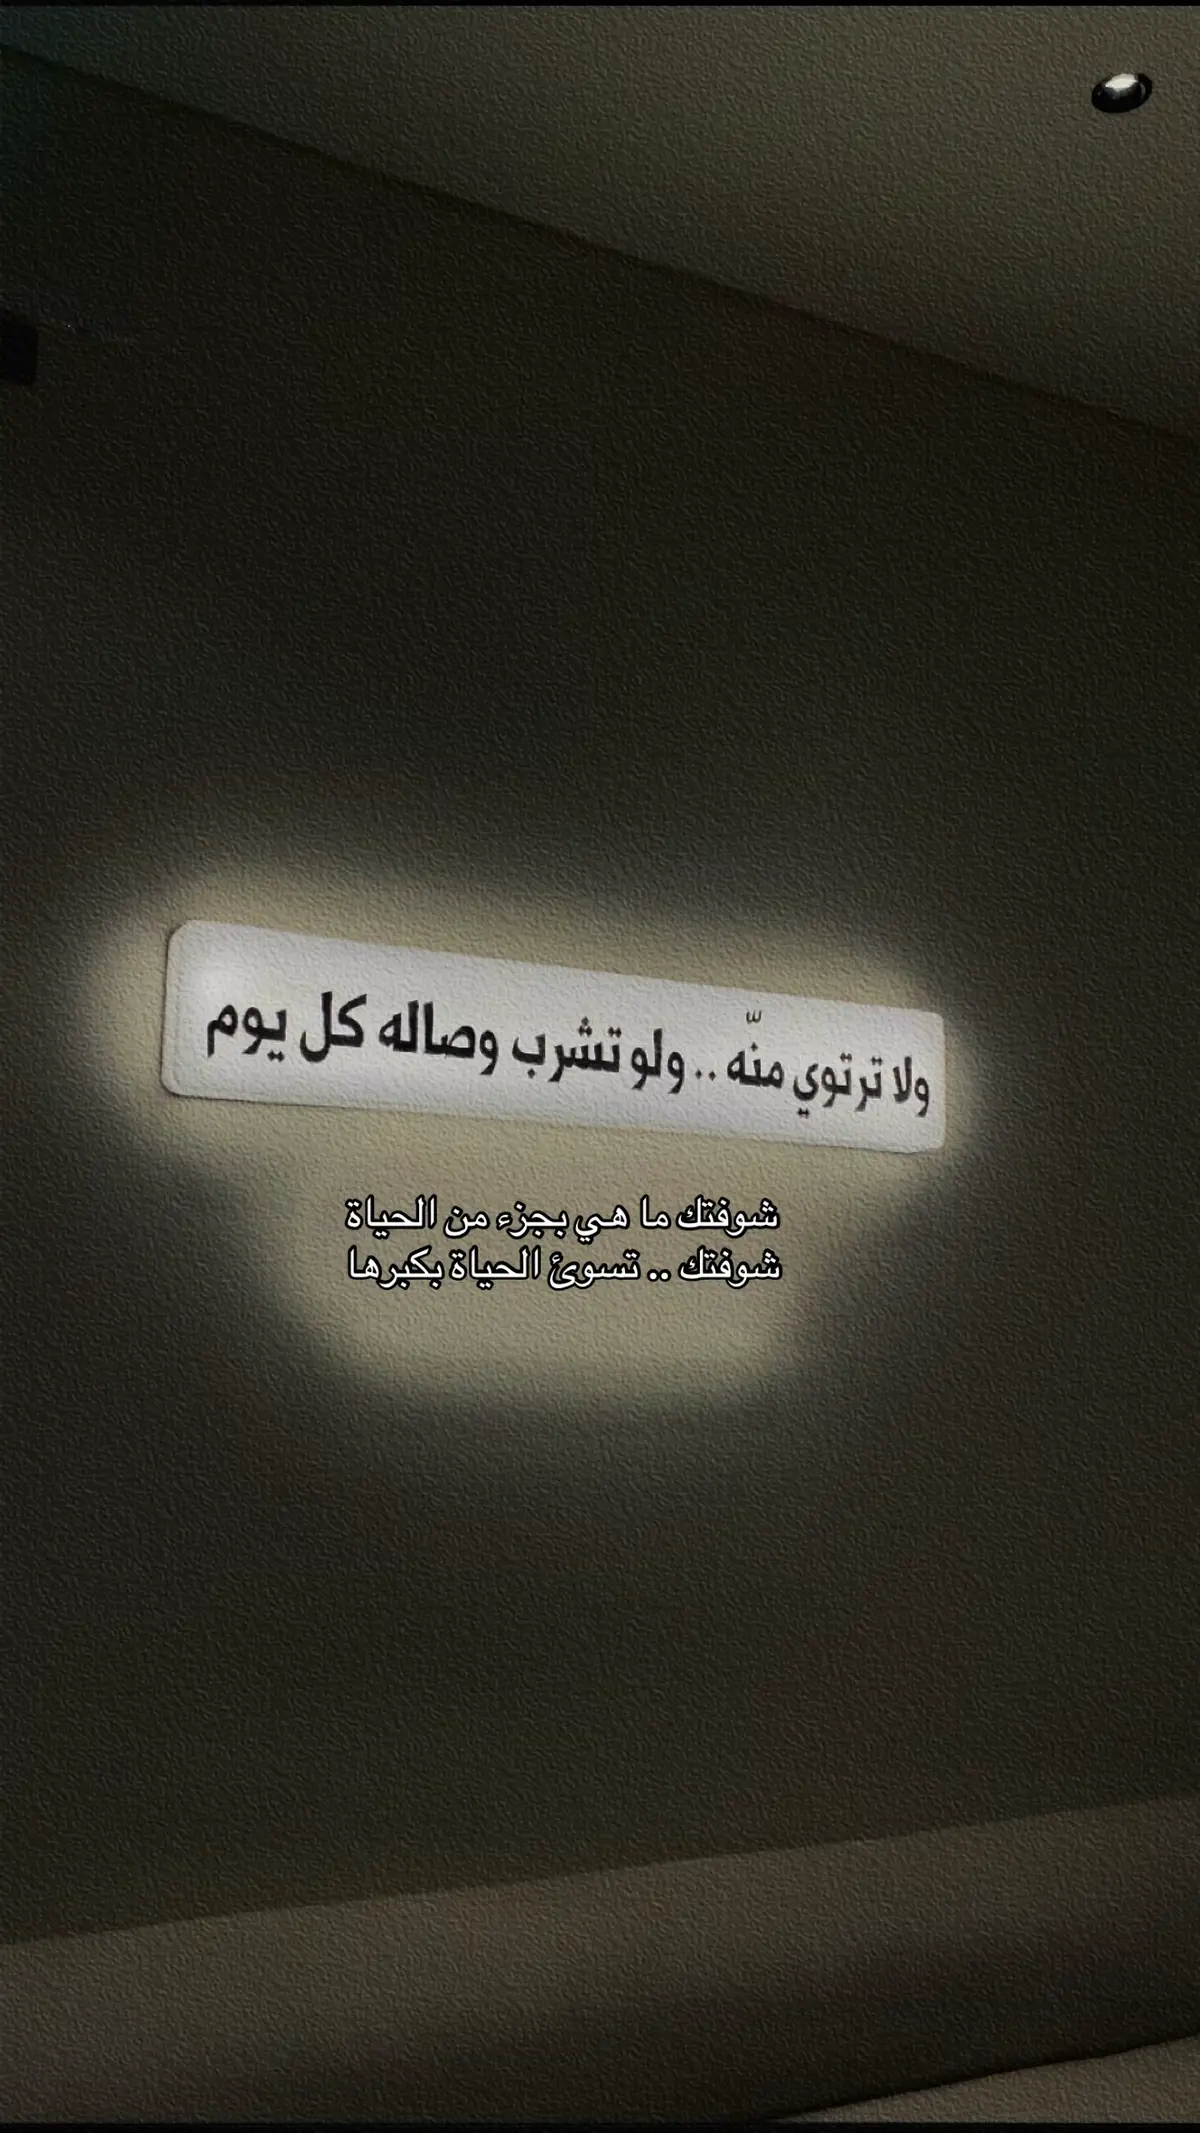 ولا ترتوي منّه .. ولو تشرب وصاله كل يوم
شوفتك ما هي بجزء من الحياة
شوفتك .. تسوئ الحياة بكبرها